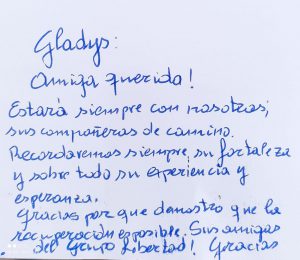 Gladys:
Amiga querida!
Estará siempre con nosotras;
sus compañeras de camino.
Recordaremos siempre, su fortaleza
y sobre todo su experiencia y
esperanza.
Gracias por que demostró que la
recuperación es posible. Sus amigas
del Grupo Libertad! Gracias